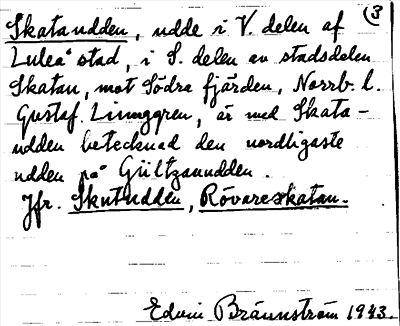 ③
Skataudden, udde i V. delen af
Luleå stad, i S. delen av stadsdelen
Skatan, mot Södra fjärden, Norrb. l.
Gustaf. Linnggren, är med Skata-
udden betecknad den nordligaste
udden på Gültzauudden.
Jfr. Skutudden, Rövareskatan.
Edvin Brännström 1943.